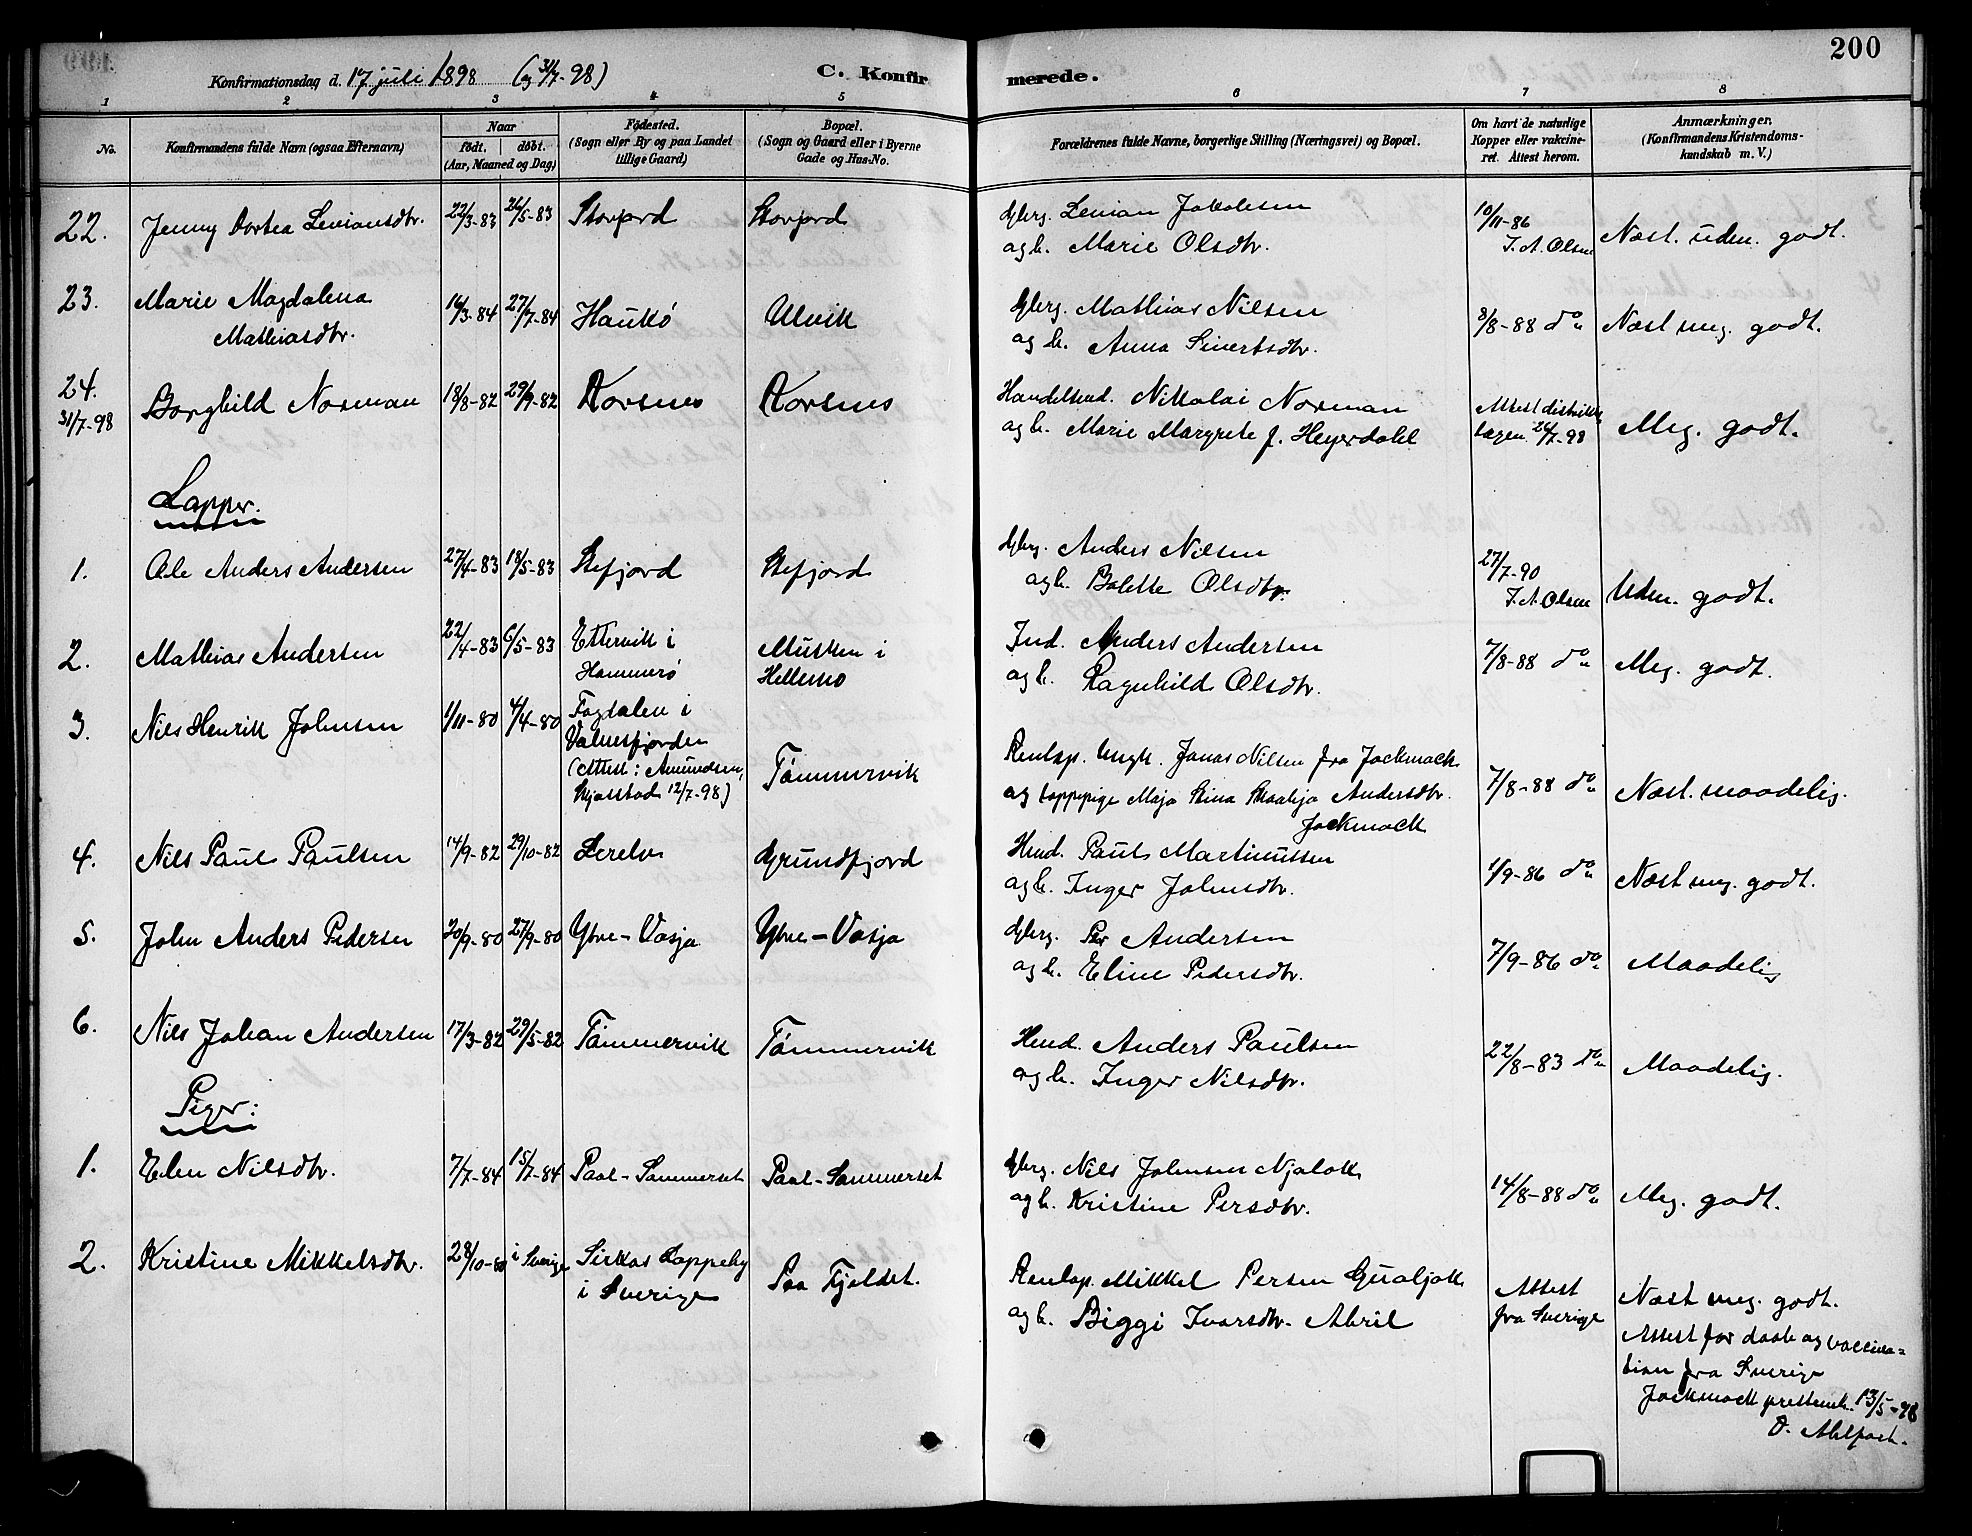 200
Konfirmationsdag d. 17 juli 1898 (og 31/7-98)
C. Konfirmerede.
1 2 3 4 5 6 7 8
No.
Konfirmandens fulde Navn (ogsaa Efternavn)
Naar
født. døbt.
(Aar, Maaned og Dag)
Fødested.
(Sogn eller By og paa Landet
tillige Gaard)
Bopæl.
(Sogn og Gaard eller i Byerne
Gade og Hus-No.
Forældrenes fulde Navne, borgerlige Stilling (Næringsvei) og Bopæl.
Om havt de naturlige
Kopper eller vakcine-
ret. Attest herom.
Anmærkninger.
(Konfirmandens Kristendoms-
kundskab m. V.)
22. Jenny Dortea Leviansdtr. 22/3-83 26/5-83 Storjord Storjord
Gbrg. Levian Jakobsen
og h. Marie Olsdtr.
10/11-86
J. A. Olsen
Næst. uden. godt.
23. Marie Magdalena
Mathiasdtr.
14/3-84 27/7-84 Haukø Ulvik
Gbrg. Mathias Nilsen
og h. Anna Sivertsdtr.
8/8-88 do Næst meg. godt.
24.
31/7-98
Borghild Norman 18/8-82 29/9-82 Korsnes Korsnes
Handelsmd. Nikolai Norman
og h. Marie Margrete f. Heyerdahl
Attest distrikts
lægen 26/7-98
Meg. godt.
Lapper.
1. Ole Anders Andersen 27/4-83 18/5-83 Stefjord Stefjord
Gbrg. Anders Nilsen
og h. Bolette Olsdtr.
27/7-90
J. A. Olsen
Uden. godt.
2. Mathias Andersen 22/4-83 6/5-83
Ettervik i
Hammerø
Musken i
Hellemo
Ind. Anders Andersen
og h. Ragnhild Olsdtr.
7/8-88 do Meg. godt.
3. Nils Henrik Johnsen 1/11-80 4/4-80
Fagdalen i
Valnesfjorden
(Attest: Amundsen,
Skjærstad 12/7-98)
Tømmervik
Renlap. Ungk. Jonas Nilsen fra Jockmock
og lappepige Maja Stina Andersdtr.
Jockmock
7/8-88 do Næst. maadelig.
4. Nils Paul Paulsen 14/9-82 29/10-82 Lerelv Grundfjord
Hmd. Paul Martinussen
og h. Inger Johnsdtr.
1/9-86 do Næst meg. godt.
5. John Anders Pedersen 20/9-80 27/9-80 Ytre-Vasja Ytre-Vasja
Gbrg. Per Andersen
og h. Eline Pedersdtr.
7/9-86 do Maadelig
6. Nils Johan Andersen 17/3-82 29/5-82 Tømmervik Tømmervik
Hmd. Anders Paulsen
og h. Inger Nilsdtr.
22/8-83 do Maadelig.
Piger:
1. Elen Nilsdtr. 7/7-84 15/7-84 Paal-Sommerset Paal-Sommerset
Gbrg. Nils Johnsen Njalok
og h. Kristine Persdtr.
14/8-88 do Meg. godt.
2. Kristine Mikkelsdtr. 28/10-80 i Sverige
Sirkas Lappeby
i Sverige
Paa Fjeldet.
Renlap. Mikkel Persen Gualjok
og h. Biggi Ivarsdtr. Abril
Attest
fra Sverige
Næst meg. godt.
Attest for daab og vaccina-
tion fra Sverige
Jockmock 13/5-98